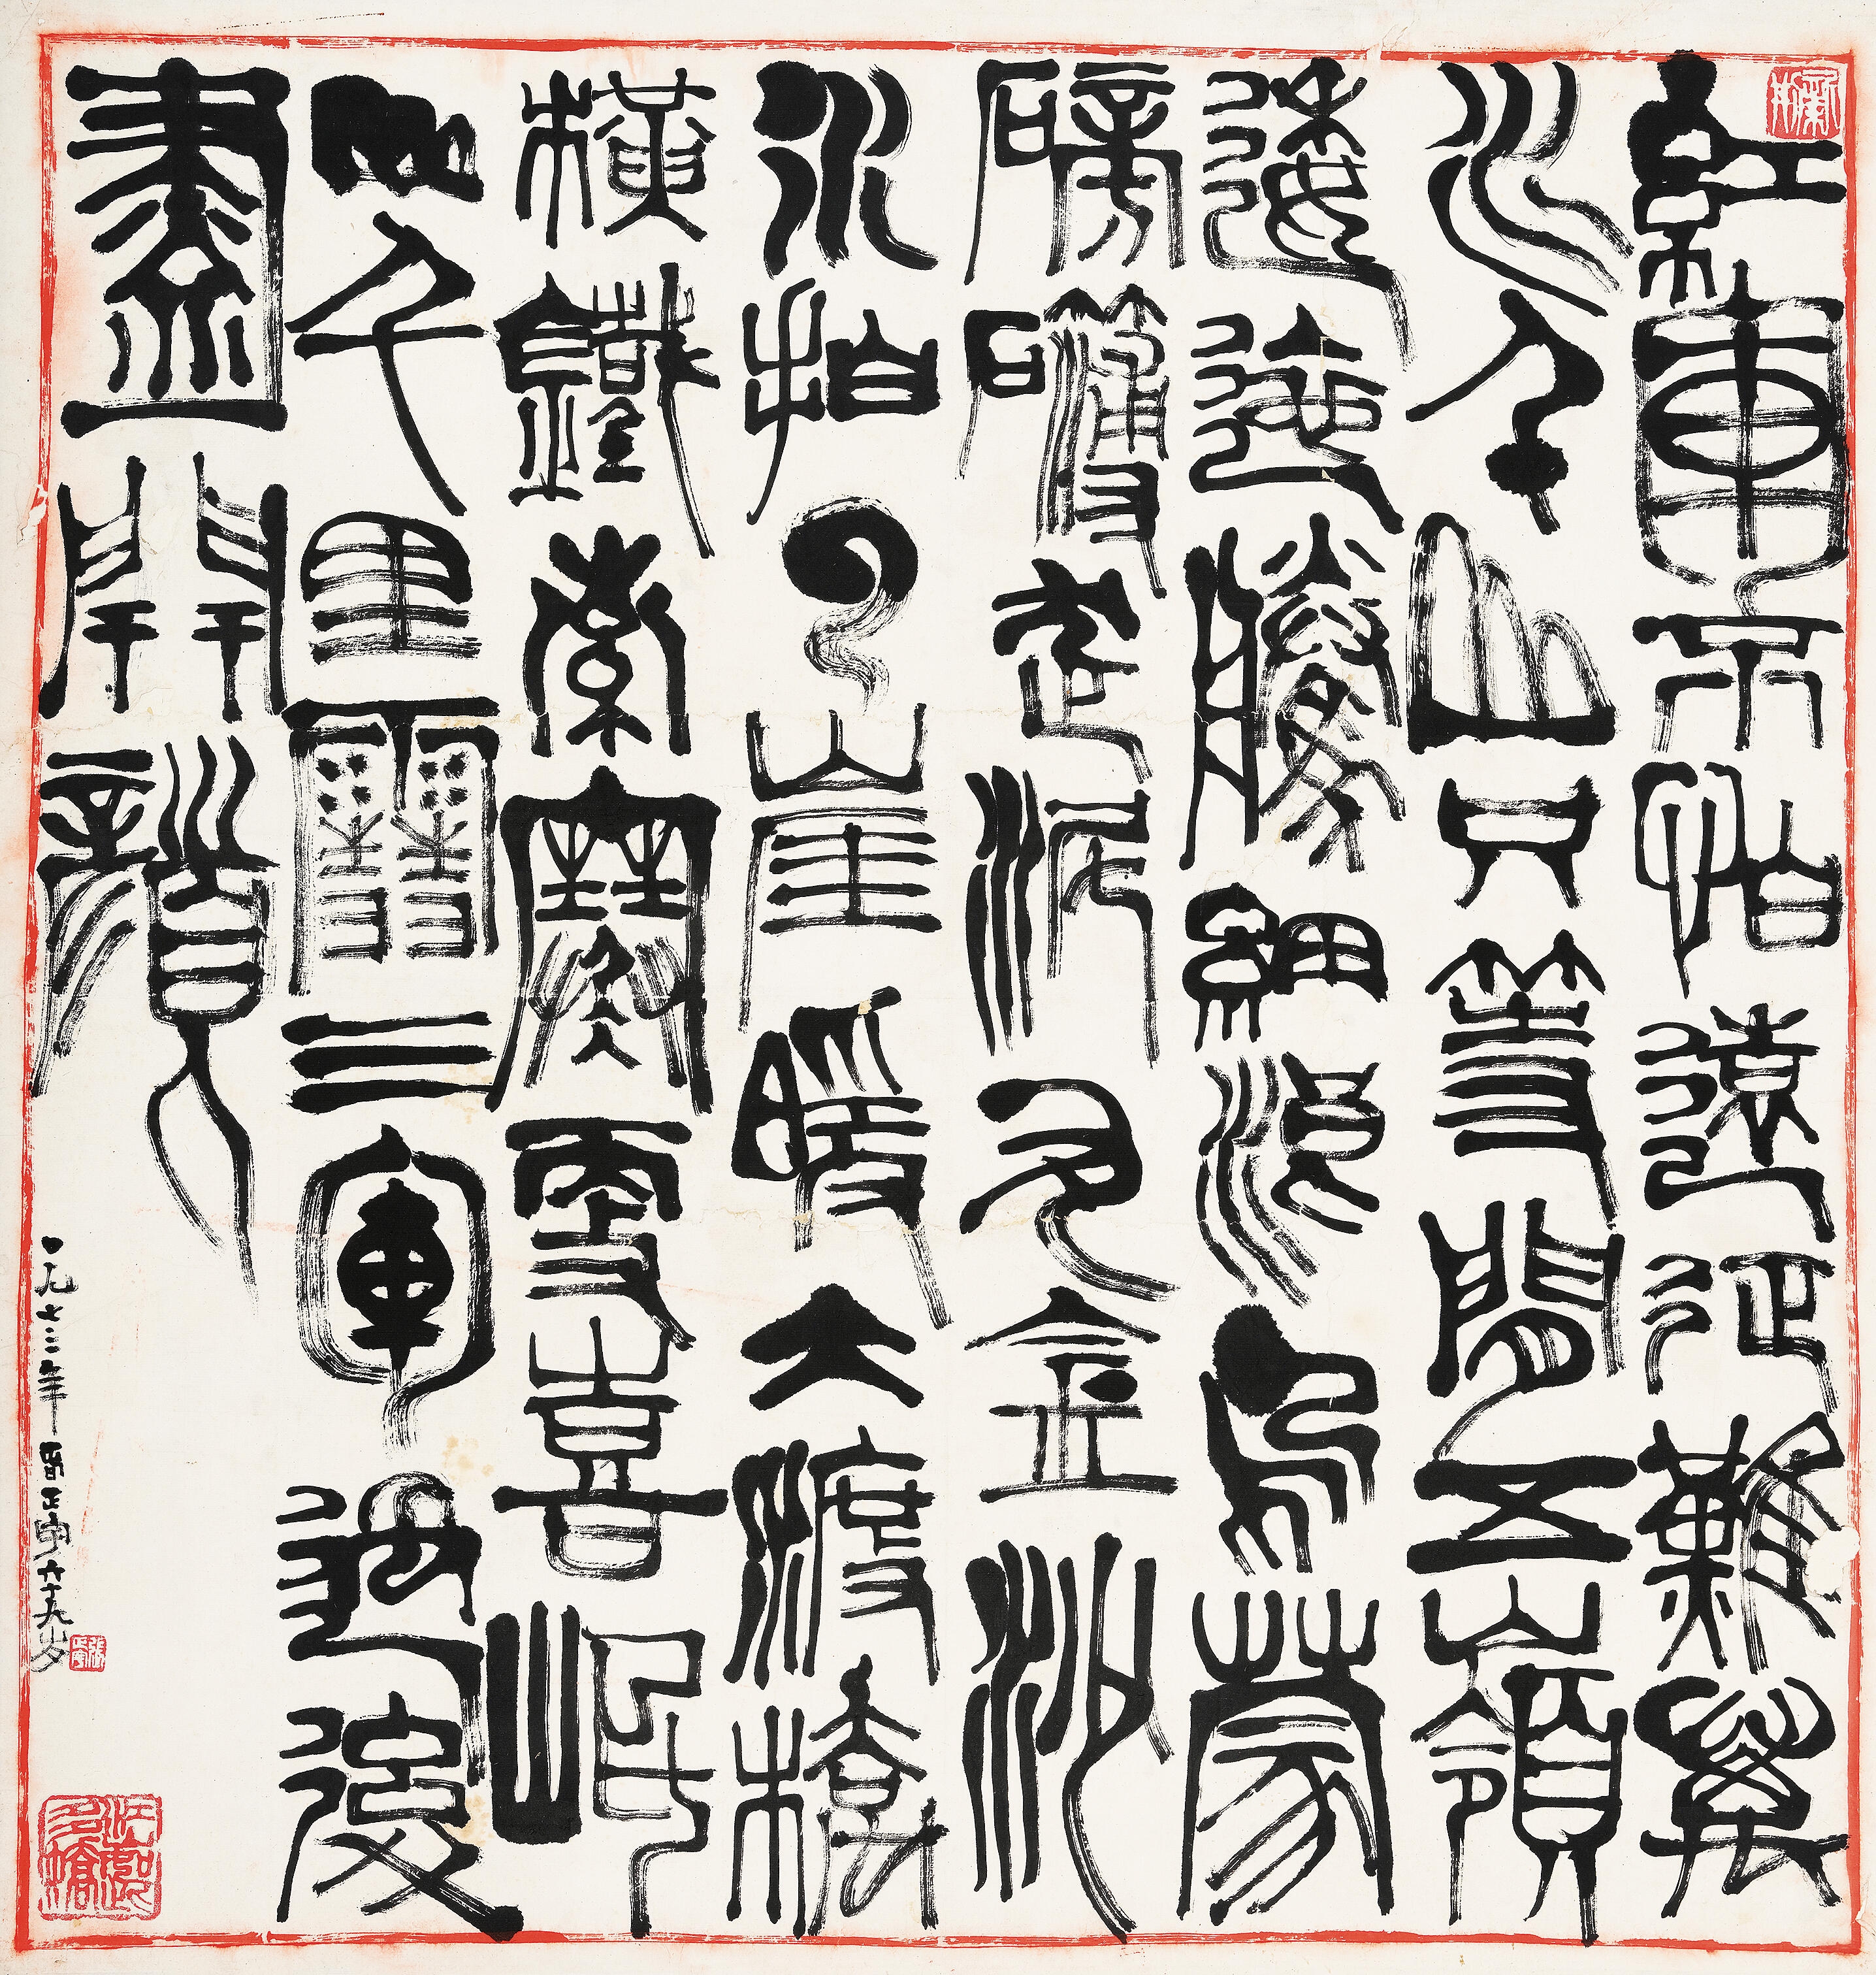 紅軍不怕遠征難萬
水千山只等閒五嶺
逶迤騰細浪烏蒙
磅礴走泥丸金沙
水拍云崖暖大渡橋
橫鐵索寒更喜岷
山千里雪三軍過後
盡開顏
一九七二年書正宇六十九岁